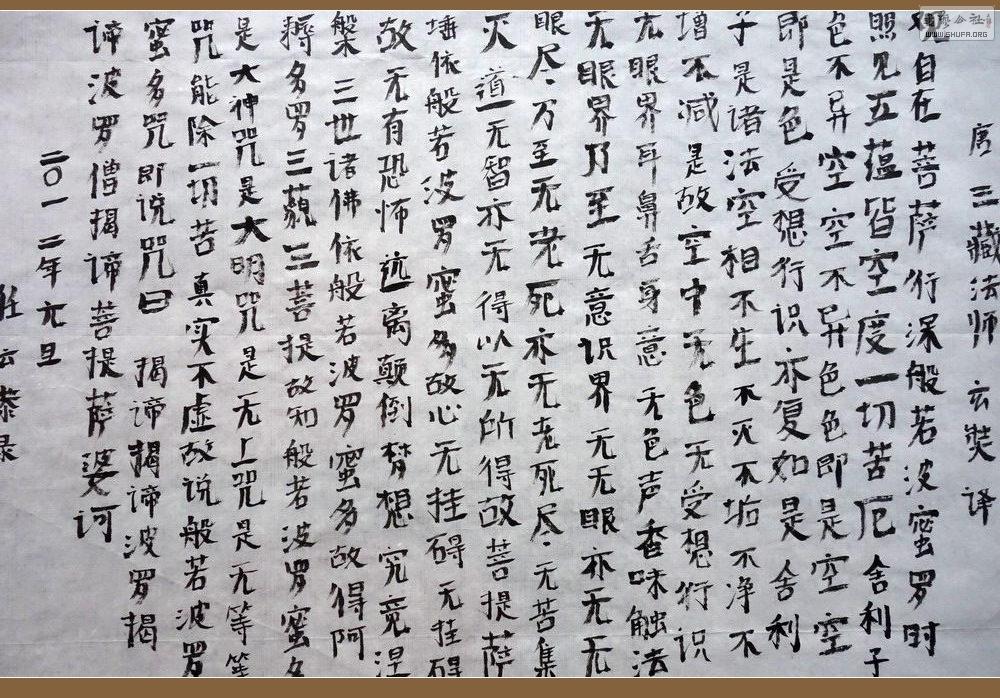 唐 三藏法师 玄奘 译
观自在菩萨行深般若波蜜罗时
照见五蕴皆空度一切苦厄舍利子
色不异空空不异色色即是空空
即是色受想行识亦复如是舍利
子是诸法空相不生不灭不垢不净不
增不减是故空中无色无受想行识
无眼界耳鼻舌身意无色声香味触法
无眼界乃至无意识界无无眼亦无无
眼尽万至无老死亦无老死尽无苦集
灭道无智亦无得以无所得故菩提萨
埵依般若波罗蜜多故心无挂碍无挂碍
故无有恐怖远离颠倒梦想究竟涅
槃三世诸佛依般若波罗蜜多故得阿
耨多罗三藐三菩提故知般若波罗蜜多
是大神咒是大明咒是无上咒是无等等
咒能除一切苦真实不虚故说般若波罗
蜜多咒即说咒曰 揭谛揭谛波罗揭
谛波罗僧揭谛菩提萨婆诃
二〇一二年元旦
录
公社
WWW.SHUFA.ORG